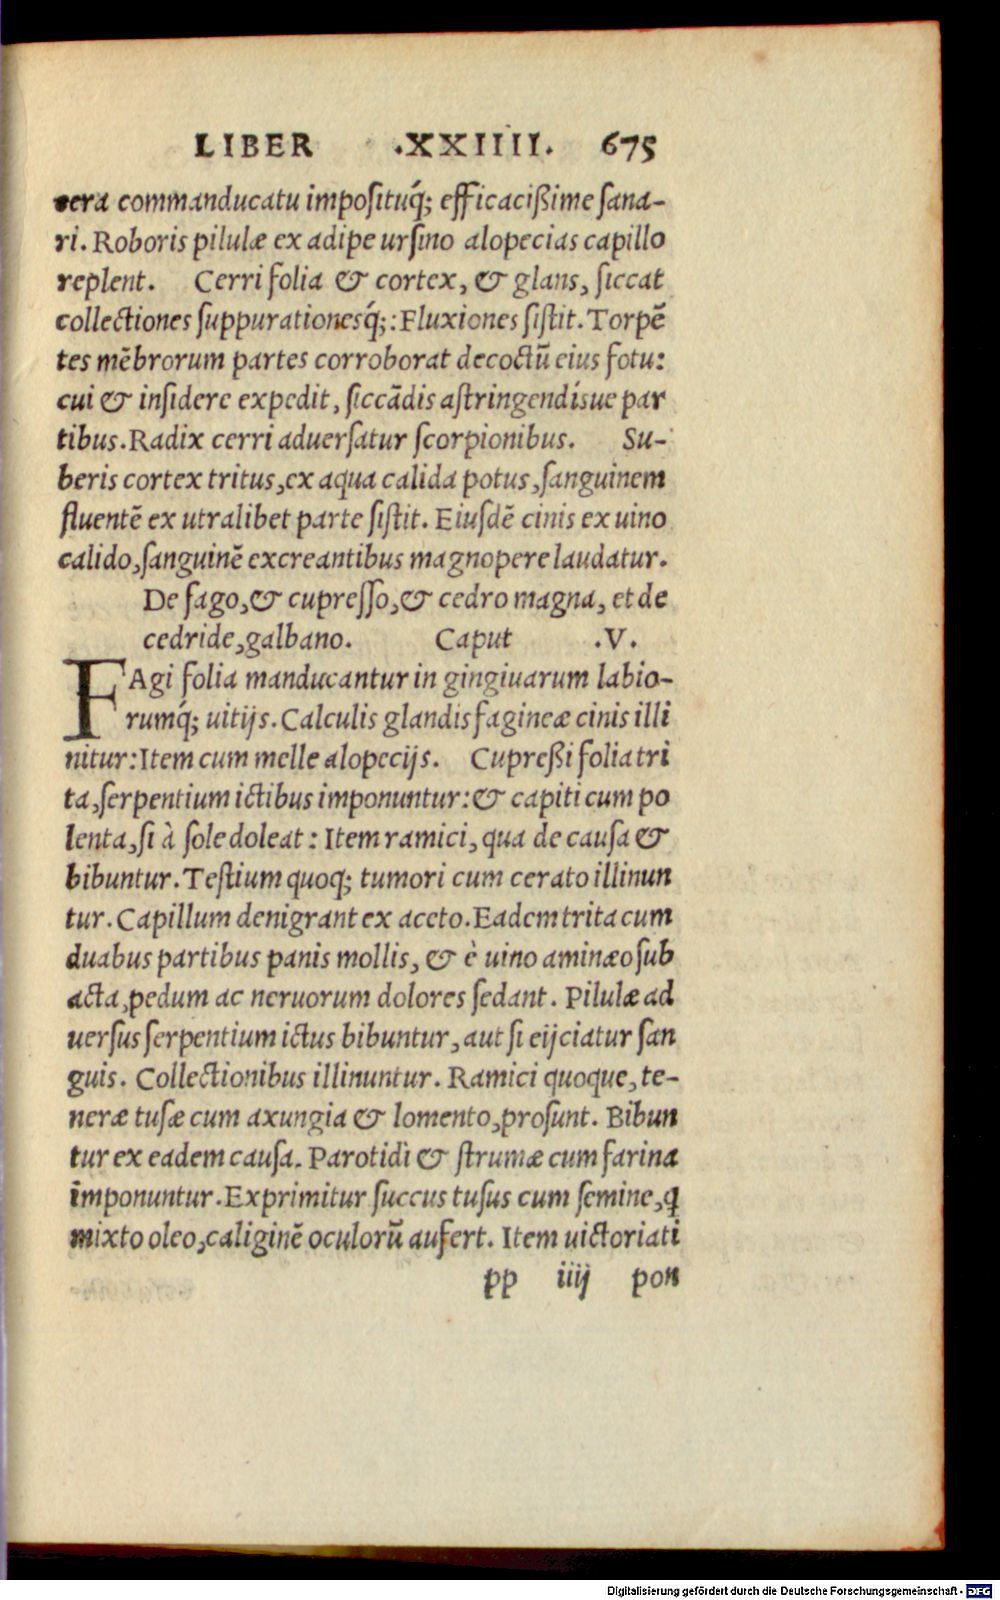 LIBER .XXIIII. 675
uera commanducatu imposituq́; efficacißime sana-
ri. Roboris pilulæ ex adipe ursino alopecias capillo
replent. Cerri folia & cortex, & glans, siccat
collectiones suppurationesq́;: Fluxiones sistit. Torpẽ
tes mẽbrorum partes corroborat decoctũ eius fotu:
cui & insidere expedit, siccãdis astringendísue par
tibus. Radix cerri aduersatur scorpionibus. Su-
beris cortex tritus, ex aqua calida potus, sanguinem
fluentẽ ex utralibet parte sistit. Eiusdẽ cinis ex uino
calido, sanguinẽ excreantibus magnopere laudatur.
De fago, & cupresso, & cedro magna, et de
cedride, galbano. Caput .V.
FAgi folia manducantur in gingiuarum labio-
rumq́; uitijs. Calculis glandis fagineæ cinis illi
nitur: Item cum melle alopecijs. Cupreßi folia tri
ta, serpentium ictibus imponuntur: & capiti cum po
lenta, si à sole doleat: Item ramici, qua de causa &
bibuntur. Testium quoq; tumori cum cerato illinun
tur. Capillum denigrant ex aceto. Eadem trita cum
duabus partibus panis mollis, & è uino aminæo sub
acta, pedum ac neruorum dolores sedant. Pilulæ ad
uersus serpentium ictus bibuntur, aut si eijciatur san
guis. Collectionibus illinuntur. Ramici quoque, te-
neræ tusæ cum axungia & lomento, prosunt. Bibun
tur ex eadem causa. Parotidi & strumæ cum farina
imponuntur. Exprimitur succus tusus cum semine, q̃
mixto oleo, caliginẽ oculorũ aufert. Item uictoriati
pp iiij pon
Digitalisierung gefördert durch die Deutsche Forschungsgemeinschaft - DFG